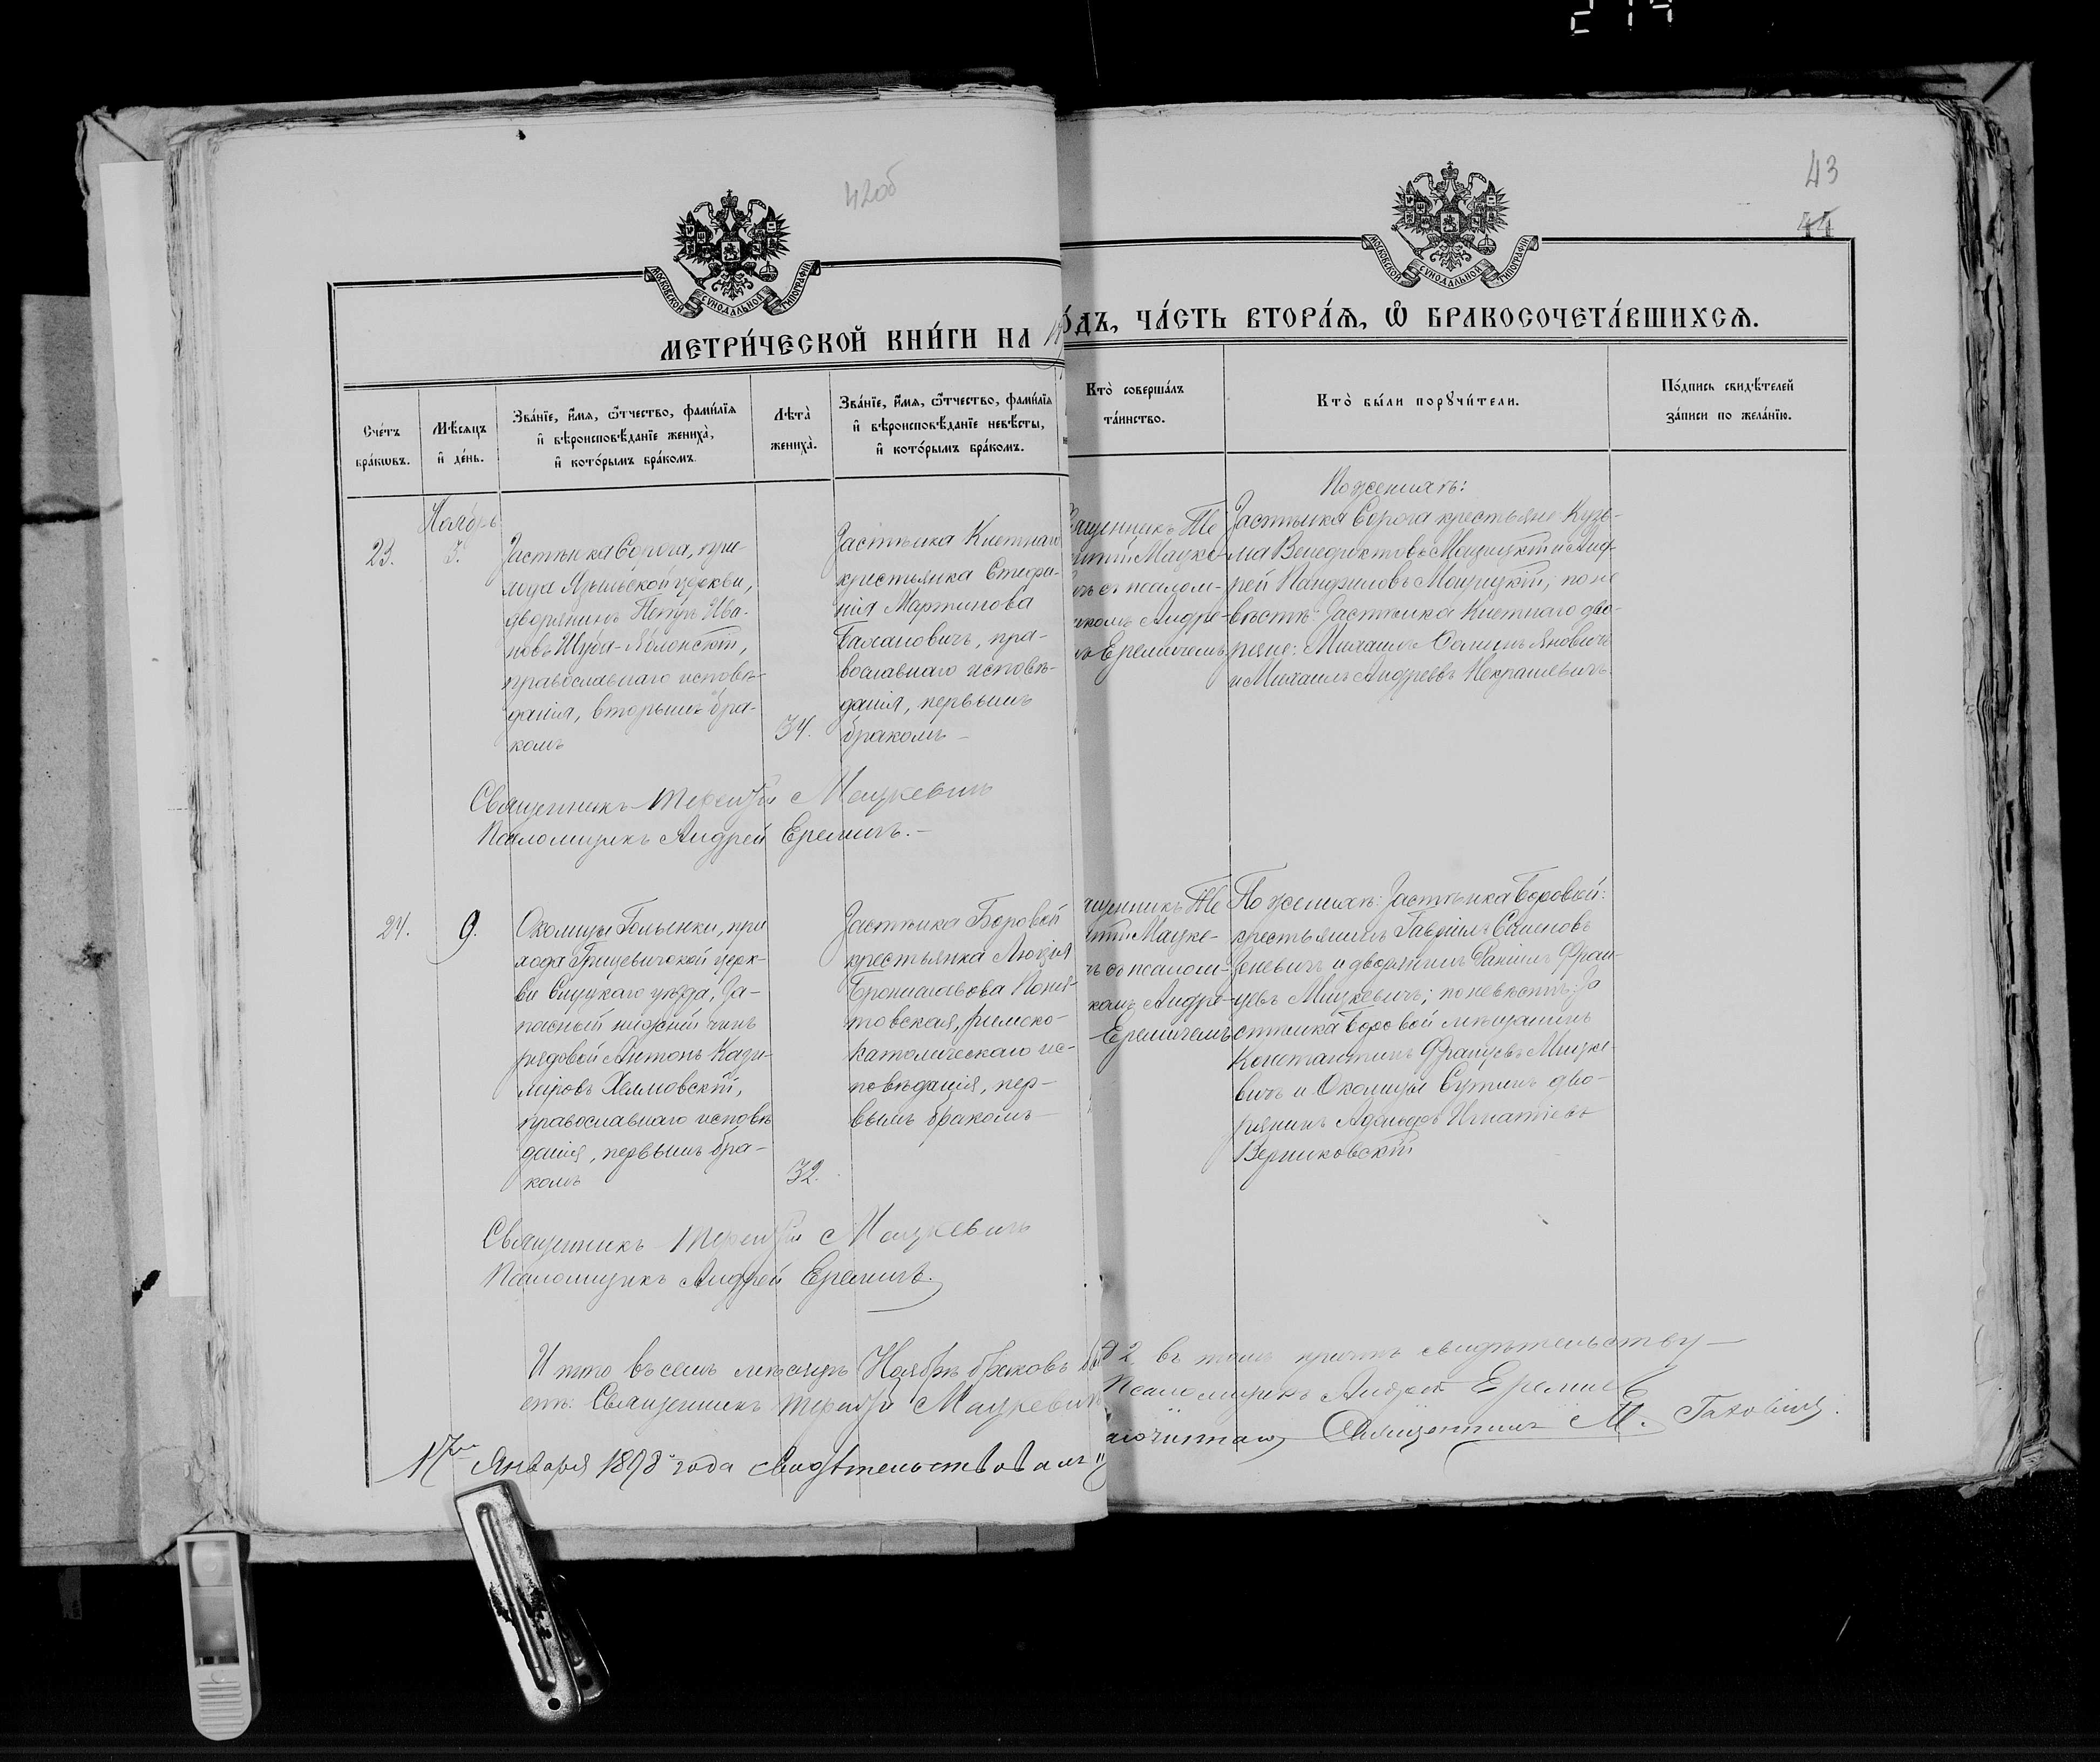 42об
43
44
МОСКОВСКОЙ СѴНОДАЛЬНОЙ ТИПОГРАФІИ
МОСКОВСКОЙ СѴНОДАЛЬНОЙ ТИПОГРАФІИ
МЕТРИ́ЧЕСКОЙ КНИ́ГИ НА
О́ДЪ, ЧА́СТЬ ВТОРА́Ѧ, Ѽ БРАКОСОЧЕТА́ВШИХСѦ.
Сче́тъ
бра́кѡвъ.
Мѣ́сѧцъ
и҆ де́нь.
Зва́нїе, и҆́мѧ, ѻ҆́тчество, фами́лїѧ
и҆ вѣроисповѣ́данїе жениха̀,
и҆ кото́рымъ бра́комъ.
Лѣта̀
жениха̀.
Зва́нїе, и҆́мѧ, ѻ҆́тчество, фами́лїѧ
и҆ вѣроисповѣ́данїе невѣ́сты,
и҆ кото́рымъ бра́комъ.
Кто̀ соверша́лъ
та́инство.
Кто̀ бы́ли порꙋчи́тели.
По́дпись свидѣ́телей
за́писи по жела́нїю.
23.
Ноябрь
5.
Застѣнка Сорога, при-
хода Языльской церкви,
дворянинъ Петръ Ива-
новъ Шуба-Яблонскій,
православнаго исповѣ-
данія, вторымъ бра-
комъ
34.
Застѣнка
крестьянка Стефа-
нія Мартинова
православнаго исповѣ-
данія, первымъ
бракомъ –
ященникъ Те
Мацке-
ъ съ псалом-
комъ Андре-
Еремичемъ
По женихѣ:
Застѣнка Сорога крестьяне: Кузь-
ма Венедиктовъ и Анд-
рей Панфиловъ; по не
вѣстѣ: Застѣнка дво-
ряне: Михаилъ Яновичъ
и Михаилъ Андреевъ Некрашевичъ.
Священникъ Терентій Мацкевичъ
Псаломщикъ Андрей Еремичъ. –
24.
9.
Околицы Гольенки, при
хода Грицевичской церк-
ви Слуцкаго уѣзда, За-
пасный нижній чинъ
рядовой Антонъ Кази-
міровъ Хелмовскій,
православнаго исповѣ
данія, первымъ бра-
комъ
32.
Застѣнка Боровой
крестьянка Люція
Брониславова Поня-
товская, римско-
католическаго ис-
повѣданія, пер-
вымъ бракомъ –
ященникъ Те
Мацке-
ъ съ псалом-
комъ Андре-
Еремичемъ
По женихѣ: Застѣнка Боровой:
крестьянинъ Гавріилъ Семеновъ
и дворянинъ Фран-
цевъ Мицкевичъ; по невѣстѣ: За
стѣнка Боровой мѣщанинъ
Константинъ Францевъ Мицке-
вичъ и Околицы дво-
рянинъ Адольфъ Игнатіевъ
Верниковскій
Священникъ Терентій Мацкевичъ
Псаломщикъ Андрей Еремичъ.
Итого въ семъ мѣсяцѣ Ноябрѣ браковъ
2, въ томъ причтъ свидѣтельству –
етъ: Священникъ Терентій Мацкевичъ
Псаломщикъ Андрей Еремичъ
17го Января 1898 года свидѣтельствовалъ
Священникъ М.